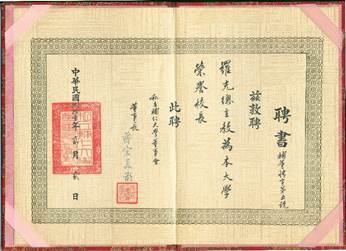 聘書
輔董聘字第五號
茲敦聘
羅光總主教為本大學
榮譽校長
此聘
私立輔仁大學董事會
董事長
中華民國年貳月貳日